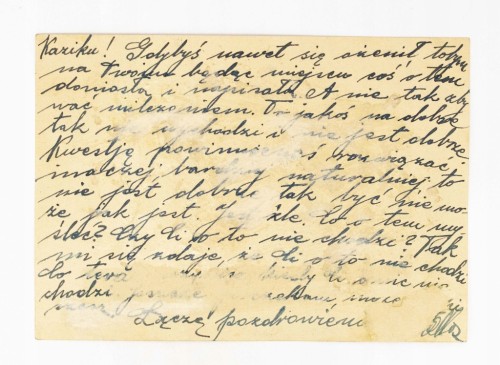 Kaziku! Gdybyś nawet się ożenił tobym
na Twoim będąc miejscu coś o tem
doniosła i napisała. A nie tak zby
wać milczeniem. To jakoś na dobre
tak nie wychodzi i nie jest dobrze.
Kwestję powinieneś rozwiązać
inaczej bardziej naturalniej, to
nie jest dobrze tak być nie mo-
że jak jest. Jej źle, to o tem my
śleć? Czy Ci o to nie chodzi? Tak
mi się zdaje, że Ci o to nie chodzi
do tera Ci o nic nie
chodzi może
Łączę pozdrowienia